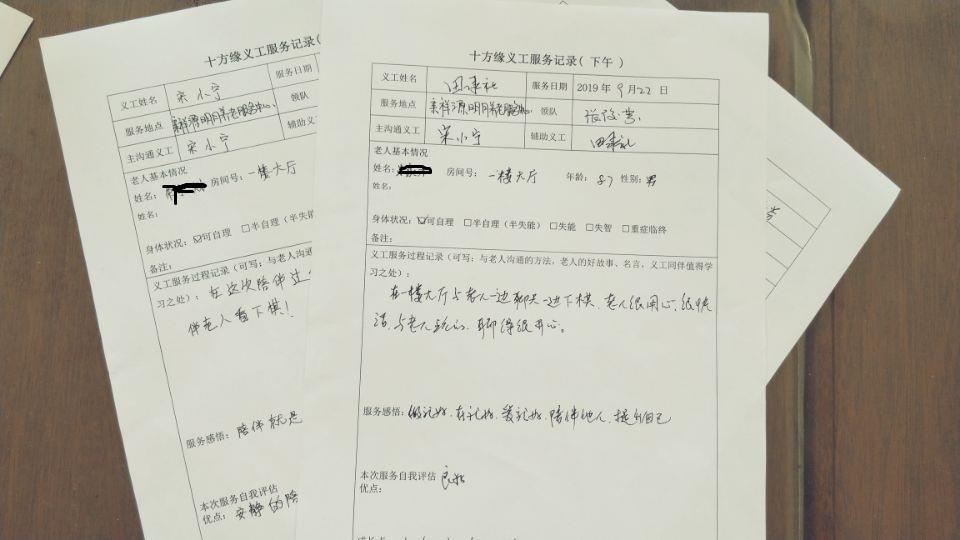 十方缘义工服务记录(
义工姓名 宋小宁 服务日期
服务地点 吉祥源明月养老服务中心 领队
主沟通义工 宋小宁 辅助义工
老人基本情况
姓名: 房间号: 一楼大厅
姓名:
身体状况: ☑可自理 □半自理(半失能)
备注:
义工服务过程记录(可写: 与老人沟
习之处): 在这次陪伴过
伴老人看下棋!
服务感悟: 陪伴就是
本次服务自我评估
优点: 安静的陪
十方缘义工服务记录( 下午 )
义工姓名 服务日期 2019 年 9 月 22 日
服务地点 吉祥源明月养老服务中心 领队
主沟通义工 宋小宁 辅助义工
老人基本情况
姓名: 房间号: 一楼大厅 年龄: 87 性别: 男
姓名:
身体状况: ☑可自理 □半自理(半失能) □失能 □失智 □重症临终
备注:
义工服务过程记录(可写: 与老人沟通的方法, 老人的好故事、名言, 义工同伴值得学
习之处):
在一楼大厅与老人一边聊天一边下棋, 老人很用心, 很快
活, 与老人 聊得很开心。
服务感悟: 陪伴他人, 提升自己
本次服务自我评估 良好
优点: